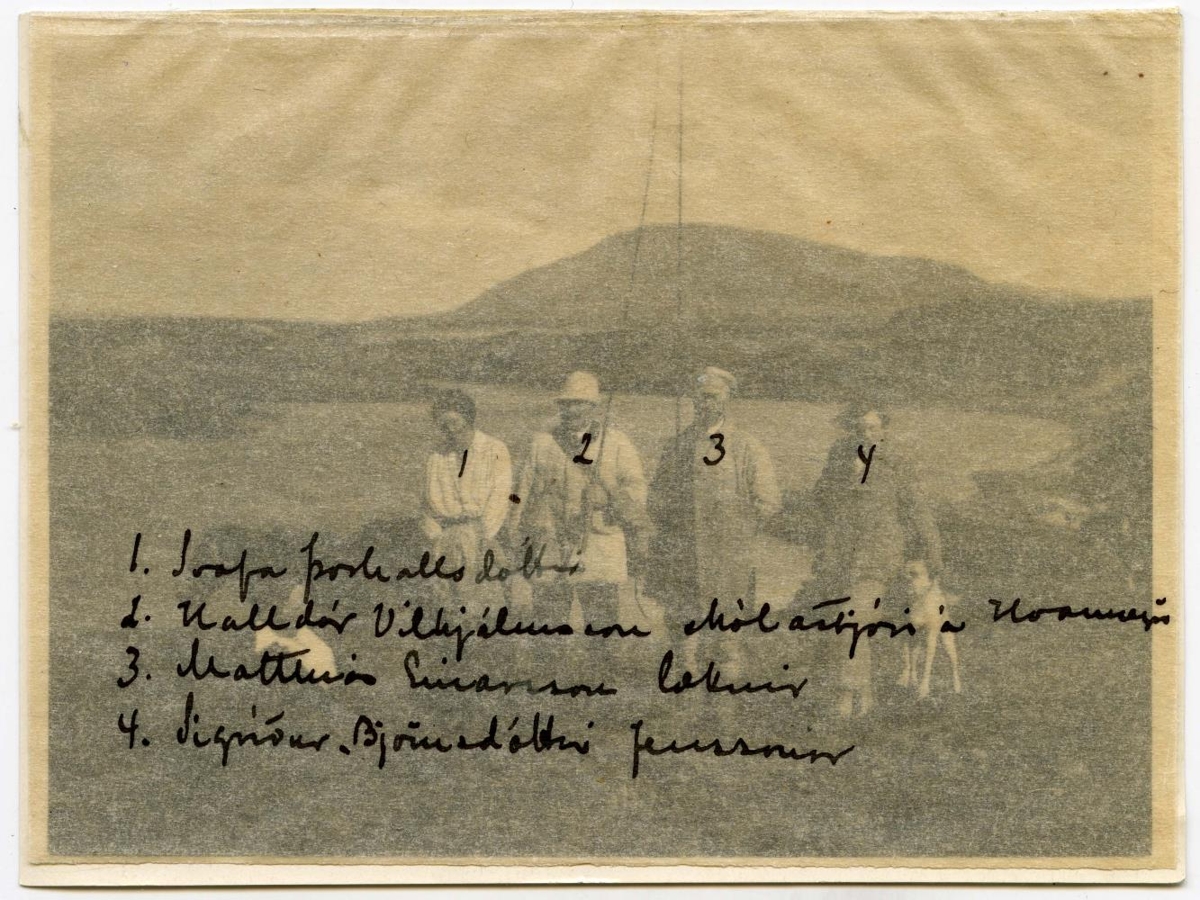 1 2 3 4
1. Svafa Þorhallsdóttir
2. Halldór Vilhjálmsson skólastjóri á Hvanneyri
3. Matthías Einarsson læknir
4. Sigríður Björnsdóttir Jenssonar